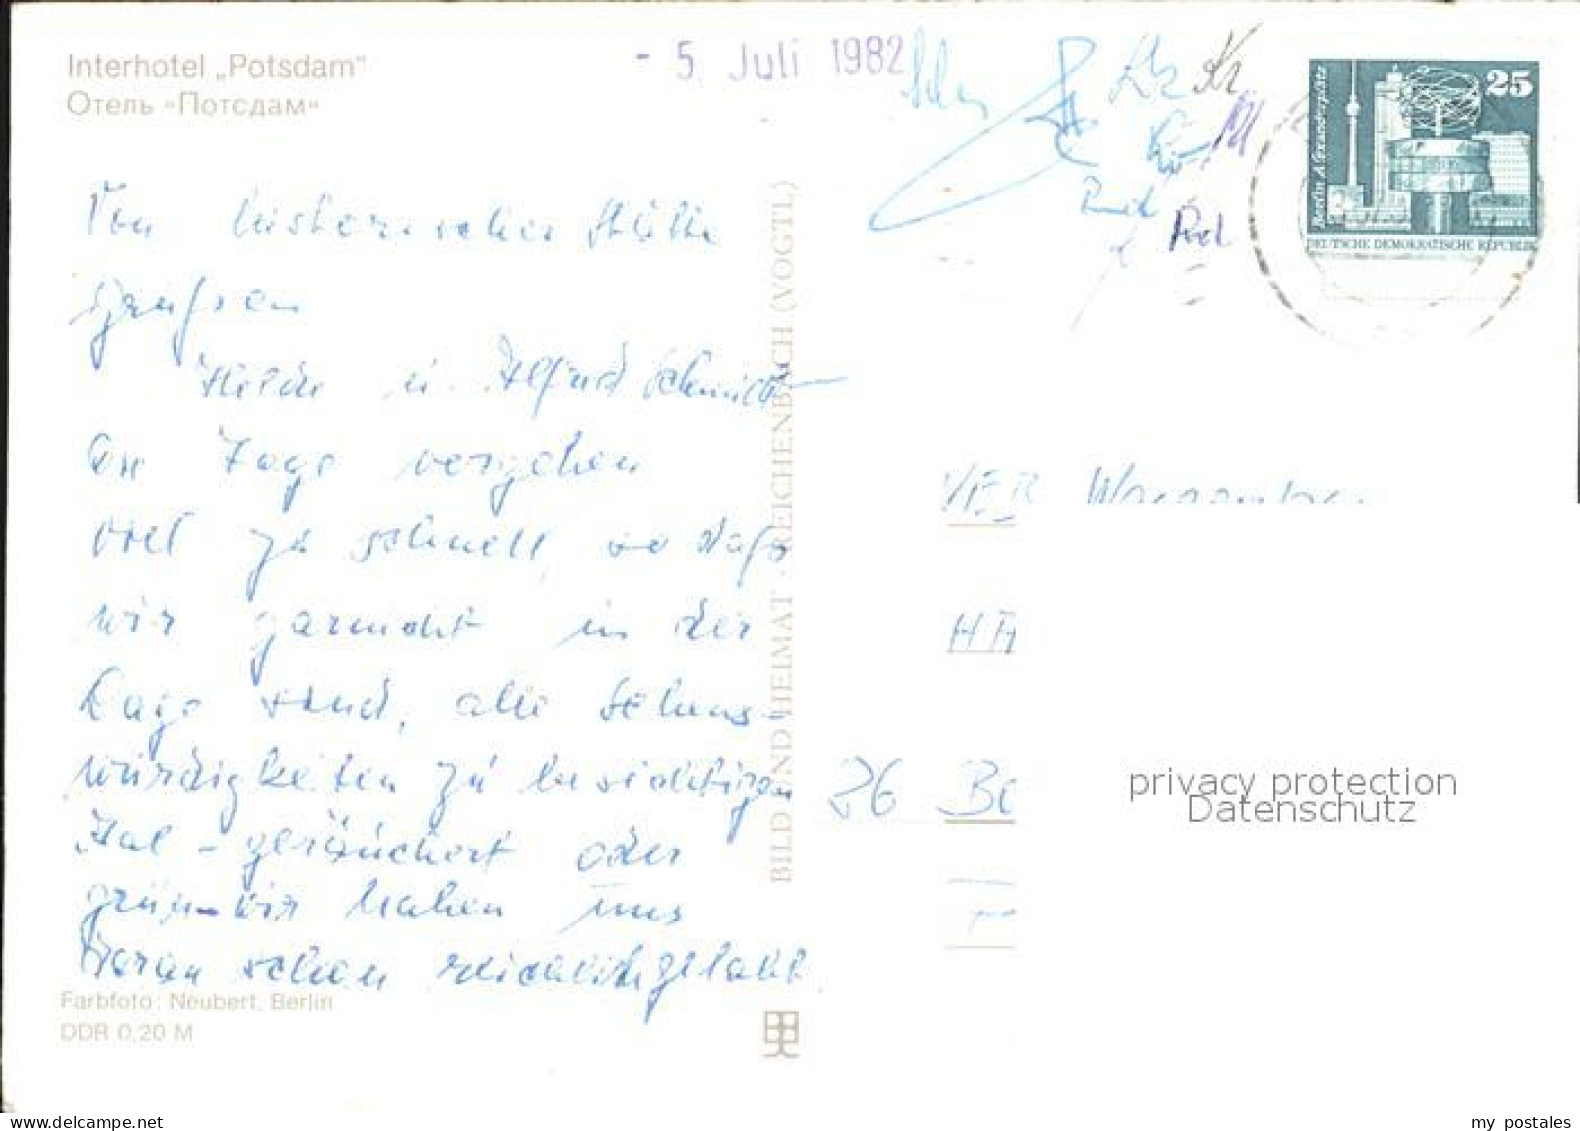 Interhotel „Potsdam"
Отель «Потсдам»
- 5. Juli 1982
25
Berlin Alexanderplatz
DEUTSCHE DEMOKRATISCHE REPUBLIK
Von historischer Stätte
grüßen
Hilde u. Alfred Schmidt
Die Tage vergehen
viel zu schnell, so daß
wir gar nicht in der
Lage sind, alle Sehens-
würdigkeiten zu besichtigen
Aal - geräuchert oder
grün - wir haben uns
daran schon reichlich gelabt.
BILD UND HEIMAT · REICHENBACH (VOGTL)
VEB
HA
26
privacy protection
Datenschutz
Farbfoto: Neubert, Berlin
DDR 0,20 M
www.delcampe.net
my_postales